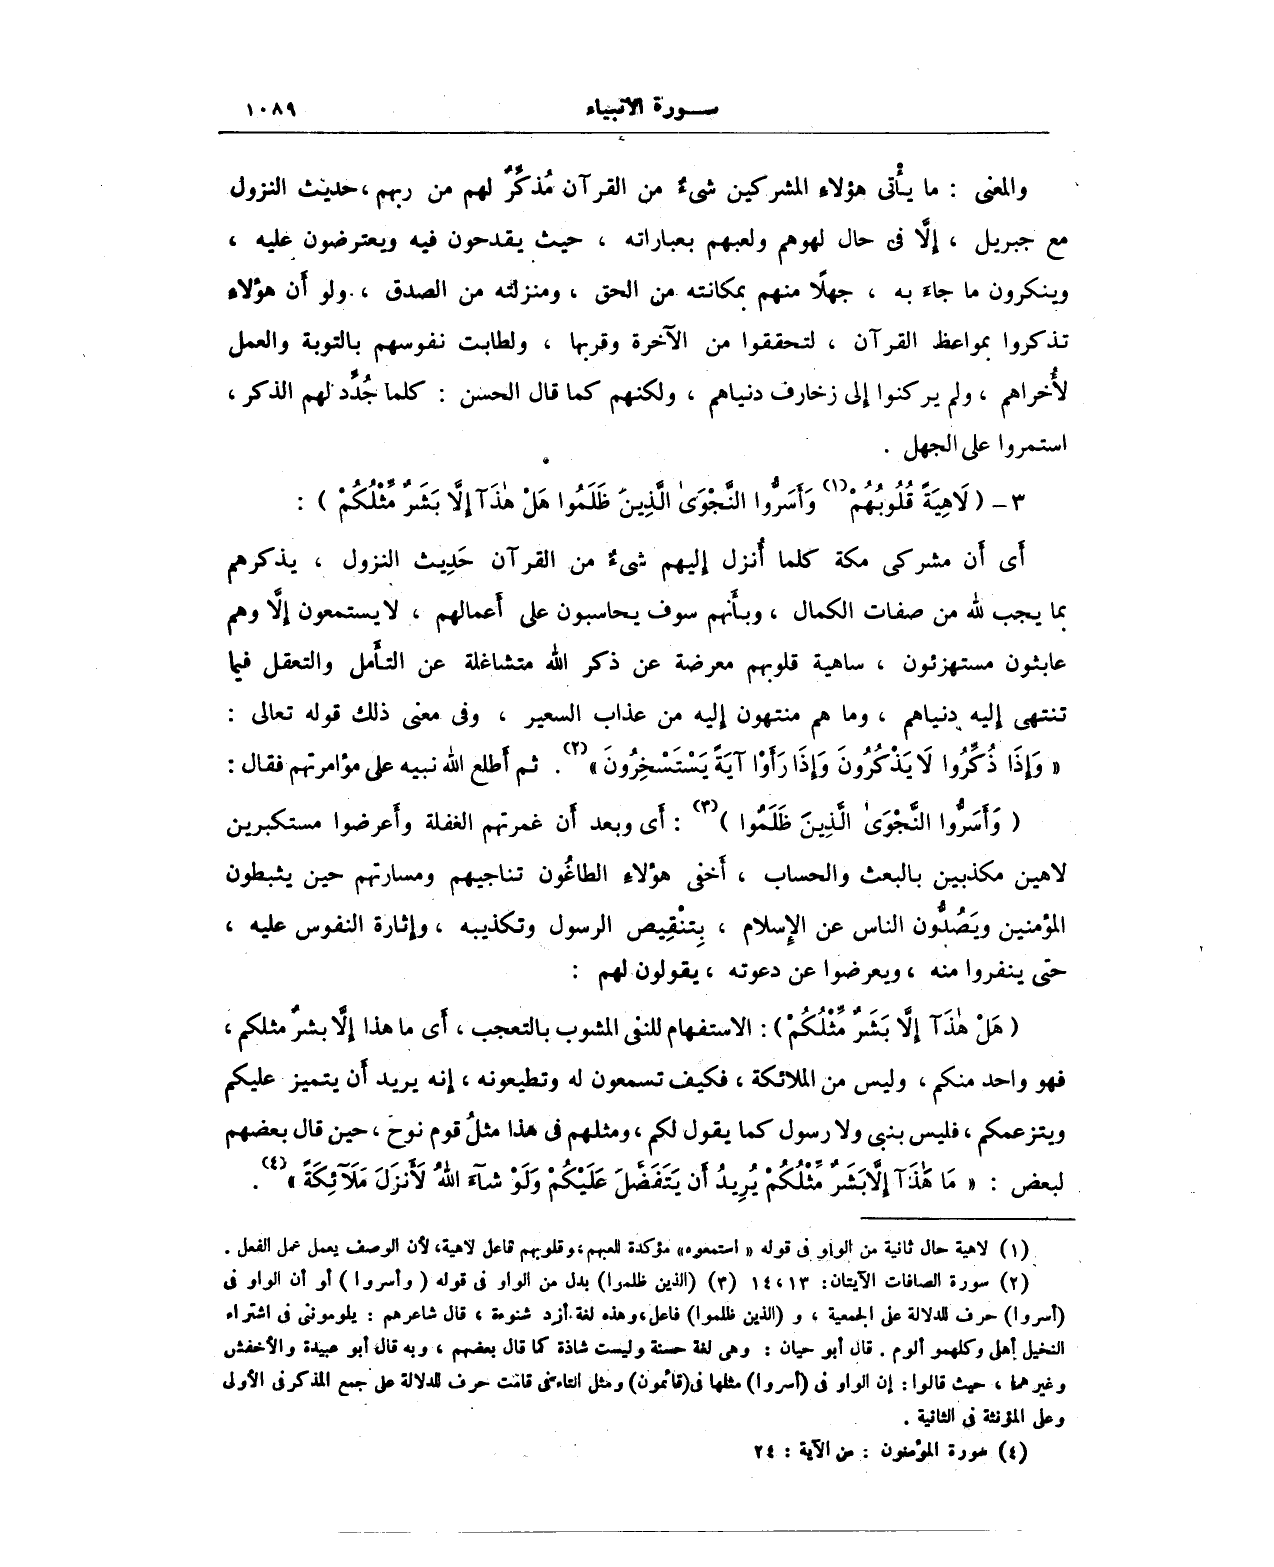 سورة الأنبياء ١٠٨٩
والمعنى : ما يأْتى هؤلاء المشركين شىءٌ من القرآن مُذكِّرٌ لهم من ربهم ، حديث النزول
مع جبريل ، إلَّا فى حال لهوهم ولعبهم بعباراته ، حيث يقدحون فيه ويعترضون عليه ،
وينكرون ما جاءَ به ، جهلًا منهم بمكانته من الحق ، ومنزلته من الصدق ، ولو أَن هؤلاءِ
تذكروا بمواعظ القرآن ، لتحققوا من الآخرة وقربها ، ولطابت نفوسهم بالتوبة والعمل
لأُخراهم ، ولم يركنوا إلى زخارف دنياهم ، ولكنهم كما قال الحسن : كلما جُدِّد لهم الذكر ،
استمروا على الجهل .
٣ – ( لَاهِيَةً قُلُوبُهُمْ (١) وَأَسَرُّوا النَّجْوَىٰ الَّذِينَ ظَلَمُوا هَلْ هٰذَآ إلَّا بَشَرٌ مِّثْلُكُمْ ) :
أَى أَن مشركى مكة كلما أُنزل إليهم شىءٌ من القرآن حَدِيث النزول ، يذكرهم
بما يجب لله من صفات الكمال ، وبأَنهم سوف يحاسبون على أَعمالهم ، لا يستمعون إلَّا وهم
عابثون مستهزئون ، ساهية قلوبهم معرضة عن ذكر الله متشاغلة عن التأَمل والتعقل فيما
تنتهى إليه دنياهم ، وما هم منتهون إليه من عذاب السعير ، وفى معنى ذلك قوله تعالى :
« وَإِذَا ذُكِّرُوا لَا يَذْكُرُونَ وَإِذَا رَأَوْا آيَةً يَسْتَسْخِرُونَ » (٢) . ثم أَطلع الله نبيه على مؤامرتهم فقال :
( وَأَسَرُّوا النَّجْوَىٰ الَّذِينَ ظَلَمُوا ) (٣) : أَى وبعد أَن غمرتهم الغفلة وأَعرضوا مستكبرين
لاهين مكذبين بالبعث والحساب ، أَخفى هؤلاءِ الطاغُون تناجيهم ومسارتهم حين يثبطون
المؤمنين ويَصُدُّون الناس عن الإِسلام ، بِتنْقِيص الرسول وتكذيبه ، وإثارة النفوس عليه ،
حتى ينفروا منه ، ويعرضوا عن دعوته ، يقولون لهم :
( هَلْ هٰذَآ إلَّا بَشَرٌ مِّثْلُكُمْ ) : الاستفهام للنفى المشوب بالتعجب ، أَى ما هذا إلَّا بشرٌ مثلكم ،
فهو واحد منكم ، وليس من الملائكة ، فكيف تسمعون له وتطيعونه ، إنه يريد أَن يتميز عليكم
ويتزعمكم ، فليس بنبى ولا رسول كما يقول لكم ، ومثلهم فى هذا مثلُ قوم نوح ، حين قال بعضهم
لبعض : « مَا هَٰذَآ إِلَّا بَشَرٌ مِّثْلُكُمْ يُرِيدُ أَن يَتَفَضَّلَ عَلَيْكُمْ وَلَوْ شَآءَ اللهُ لَأَنزَلَ مَلَآئِكَةً » (٤) .
(١) لاهية حال ثانية من الواو فى قوله « استمعوه » مؤكدة للعبهم ، وقلوبهم فاعل لاهية، لأن الوصف يعمل عمل الفعل .
(٢) سورة الصافات الآيتان: ١٣ ، ١٤ (٣) (الذين ظلموا) بدل من الواو فى قوله ( وأسروا ) أو أن الواو فى
(أسروا) حرف للدلالة على الجمعية ، و (الذين ظلموا) فاعل ، وهذه لغة أزد شنوءة ، قال شاعرهم : يلوموننى فى اشتراء
النخيل أهلى وكلهمو ألوم . قال أبو حيان : وهى لغة حسنة وليست شاذة كما قال بعضهم ، وبه قال أبو عبيدة والأخفش
وغيرهما ، حيث قالوا : إن الواو فى (أسروا) مثلها فى (قائمون) ومثل التاء فى قامت حرف للدلالة على جمع المذكر فى الأولى
وعلى المؤنثة فى الثانية .
(٤) سورة المؤمنون : من الآية : ٢٤